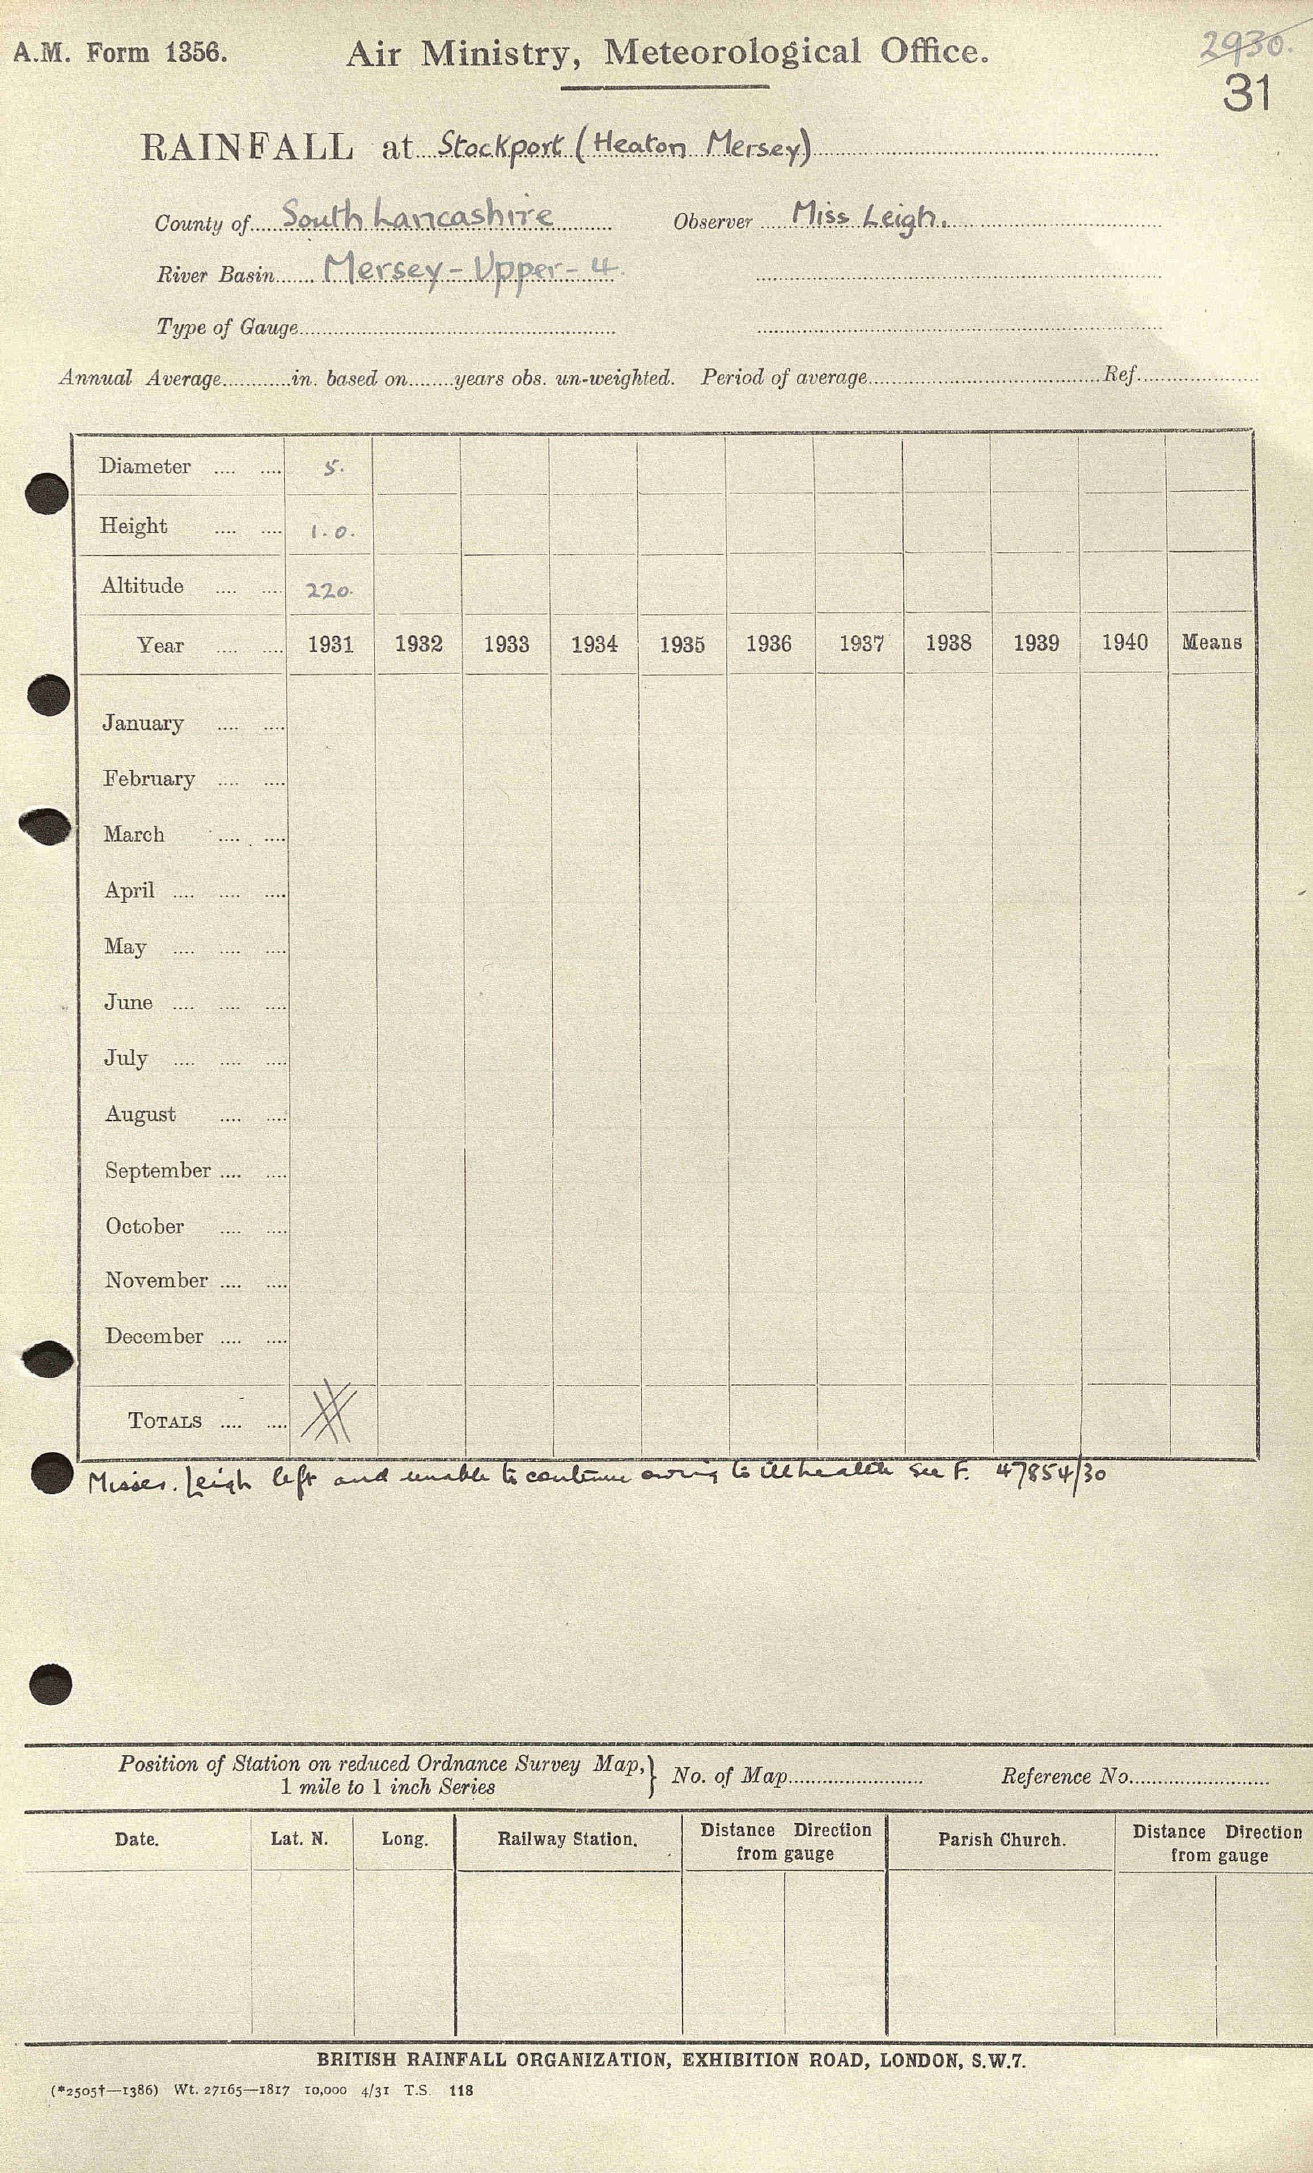 A.M. Form 1356.
Air Ministry, Meteorological Office.
2930.
31
RAINFALL at Stockport (Heaton Mersey)
County of South Lancashire Observer Miss Leigh.
River Basin Mersey - Upper - 4.
Type of Gauge
Annual Average in. based on years obs. un-weighted. Period of average Ref.
Diameter 5.
Height 1.0.
Altitude 220.
Year 1931 1932 1933 1934 1935 1936 1937 1938 1939 1940 Means
January
February
March
April
May
June
July
August
September
October
November
December
TOTALS
Misses. Leigh left and unable to continue owing to ill health see F. 47854/30
Position of Station on reduced Ordnance Survey Map,
1 mile to 1 inch Series
No. of Map Reference No.
Date. Lat. N. Long. Railway Station. Distance Direction from gauge Parish Church. Distance Direction from gauge
BRITISH RAINFALL ORGANIZATION, EXHIBITION ROAD, LONDON, S.W.7.
(*2505†—1386) Wt. 27165—1817 10,000 4/31 T.S. 118